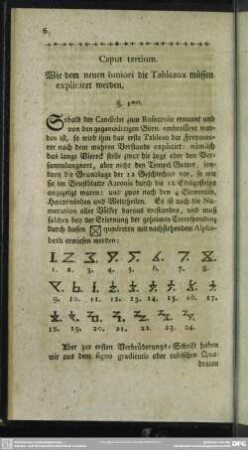 6.
Caput tertium.
Wie dem neuen Iuniori die Tableaux müssen
explicirt werden.
§. 1mo.
Sobald der Candidat zum Rosecroix ernannt und
von den gegenwärtigen Bırn. embrassirt wor-
den ist, so wird ihm das erste Tableau der Freymau-
rer nach dem wahren Verstande explicirt: nämlich
das lange Viereck stelle zwar die Lage oder den Ver-
sammlungsort, aber nicht den Tempel Gottes, son-
dern die Grundlage der 12 Geschlechter vor, so wie
sie im Brustblatte Aaronis durch die 12 Edelgesteine
angezeigt waren: und zwar nach den 4 Elementen,
Haupttugenden und Welttheilen. Es ist auch die Nu-
meration aller Völker daraus verstanden, und muß
solches bey der Erlernung der geheimen Correspondenz
durch dessen quadraten mit nachstehendem Alpha-
beth erwiesen werden:
1. 2. 3. 4. 5. 6. 7. 8.
9. 10. 11. 12. 13. 14. 15. 16. 17.
18. 19. 20. 21. 22. 23. 24.
Aber zur ersten Verbrüderungs-Schrift haben
wir aus dem signo graditutis oder cubischen Qua-
draten